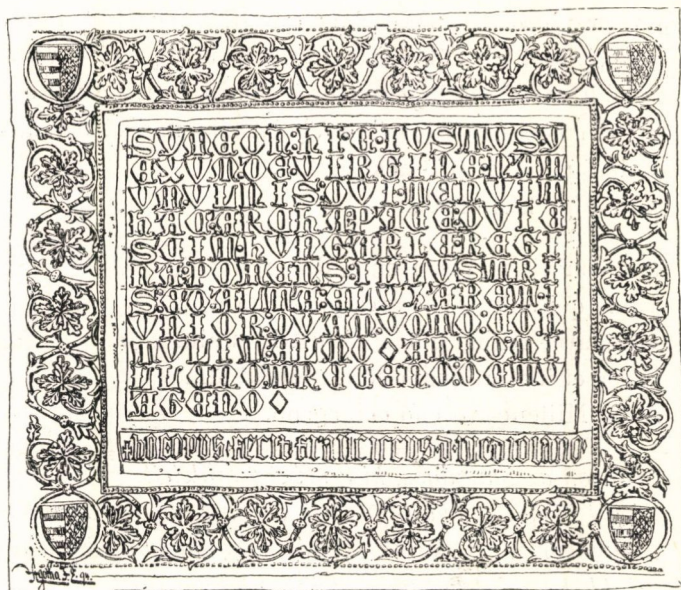 SYMEON:HIC.IVSTVS.Y
EXVM DE VIRGINE NAT
VM VLNIS:QVI TENVIT
HAC ARCHA PACE:QVIE
SCIT.HVNGARIE.REGI
NA.POTENS:ILLVSTRI
S:ET ALTA:ELYZABET:I
VNIOR:QVAM VOTO:CON
TVLIT:ALMO ◊ ANNO:MI
LLENO:TRECENO:OCTV
AGENO ◊
+HOC OPVS+FECIT FRANCISCVS D MEDIOLANO